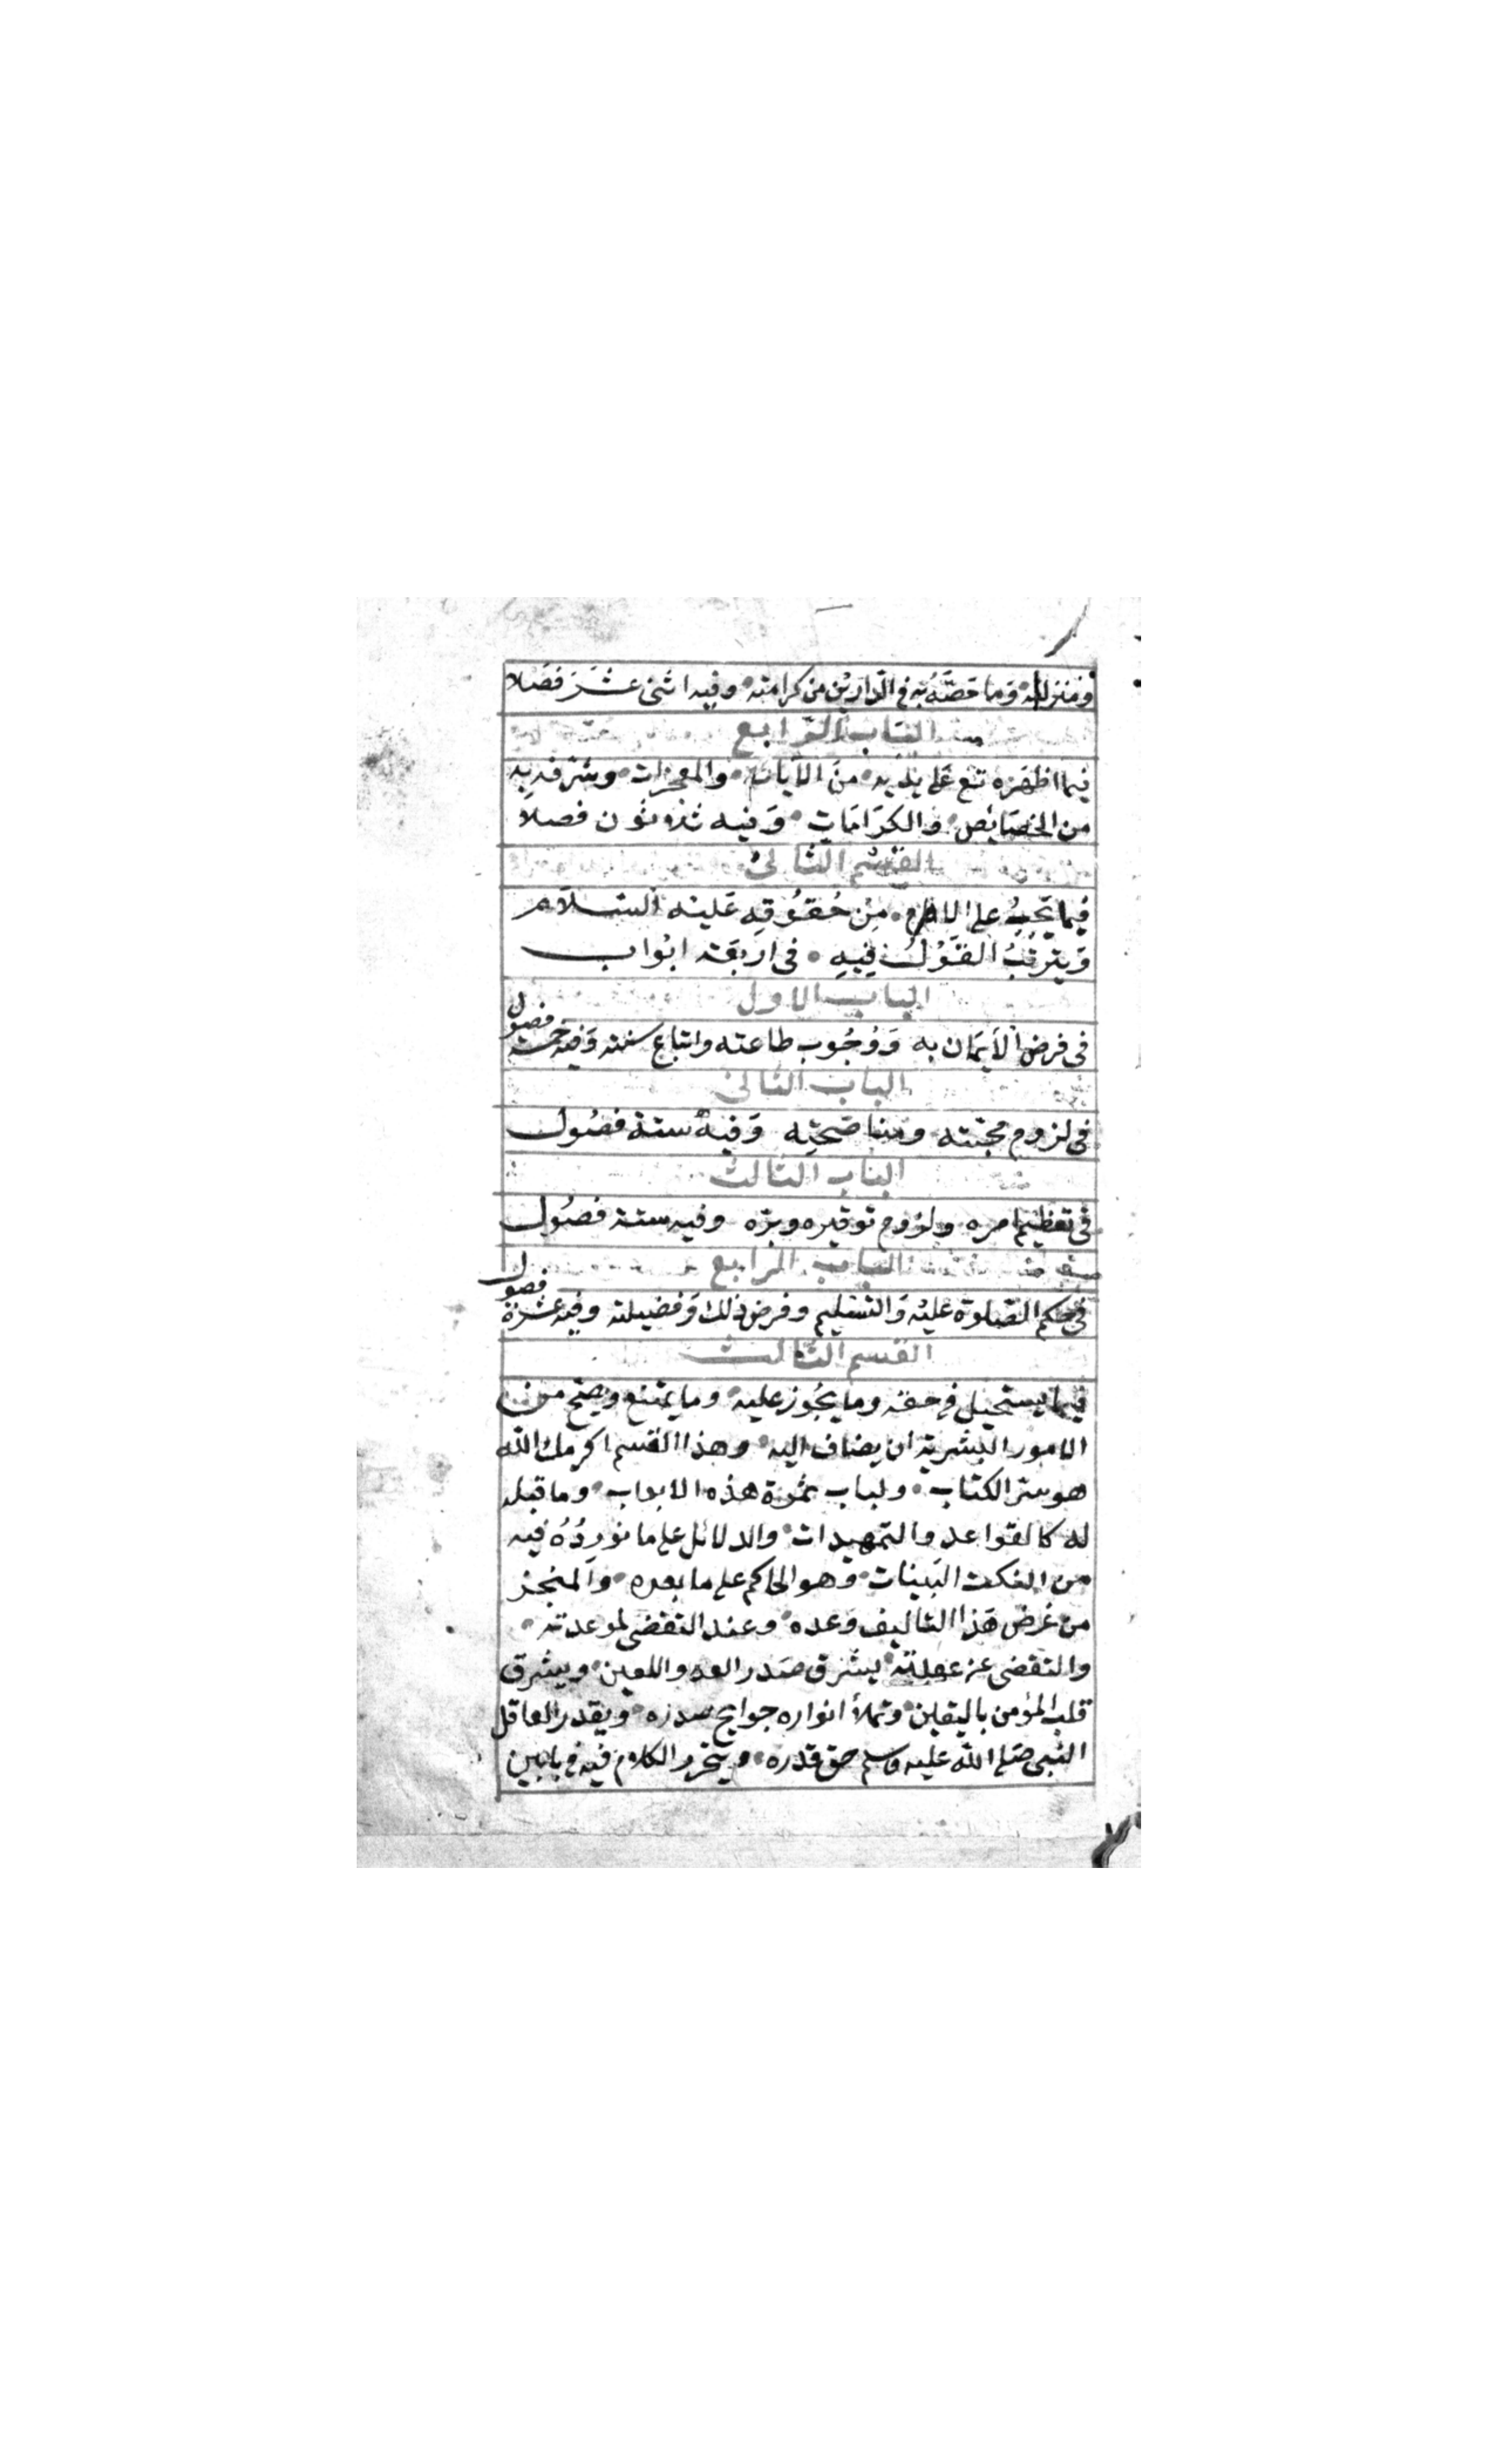 ومنزلته وما خصّه به في الدارين من كرامته وفيه اثنى عشر فصلا
الباب الرابع
فيما اظهره تع على يديه من الآيات والمعجزات وشرفه به
من الخصايص والكرامات وفيه ثلاثون فصلا
القسم الثانى
فيما يجب على الانام من حقوقه عليه السلام
ويترتب القول فيه في اربعة ابواب
الباب الاول
في فرض الأيمان به ووجوب طاعته واتباع سنته وفيه خمسة فصول
الباب الثانى
في لزوم محبته ومناصحته وفيه ستة فصول
الباب الثالث
في تعظيم امره ولزوم توقيره وبرّه وفيه ستة فصول
الباب الرابع
في حكم الصلوة عليه والتسليم وفرض ذلك وفضيلته وفيه عشرة فصول
القسم الثالث
فيما يستحيل في حقه وما يجوز عليه وما يمتنع ويصح من
الامور البشرية ان يضاف اليه وهذا القسم اكرمك الله
هو سرّ الكتاب ولباب ثمرة هذه الابواب وما قبله
له كالقواعد والتمهيدات والدلائل على ما نورده فيه
من النكت البينات وهو الحاكم على ما بعده والمنجز
من غرض هذا التاليف وعده وعند التقضى لموعدته
والتقضى عن عهدته يشرق صدر العدو اللعين ويشرق
قلب المؤمن باليقين وتملأ انواره جوانح صدره ويقدر العاقل
النبى صلى الله عليه وسلم حق قدره ويتحرر الكلام فيه في بابين